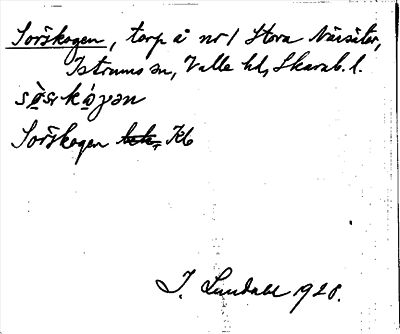 Sorskogen, torp å nr 1 Stora Näsäter,
Istrums sn, Valle hd, Skarab. l.
Sorskogen Kb
I. Lundahl 1928.